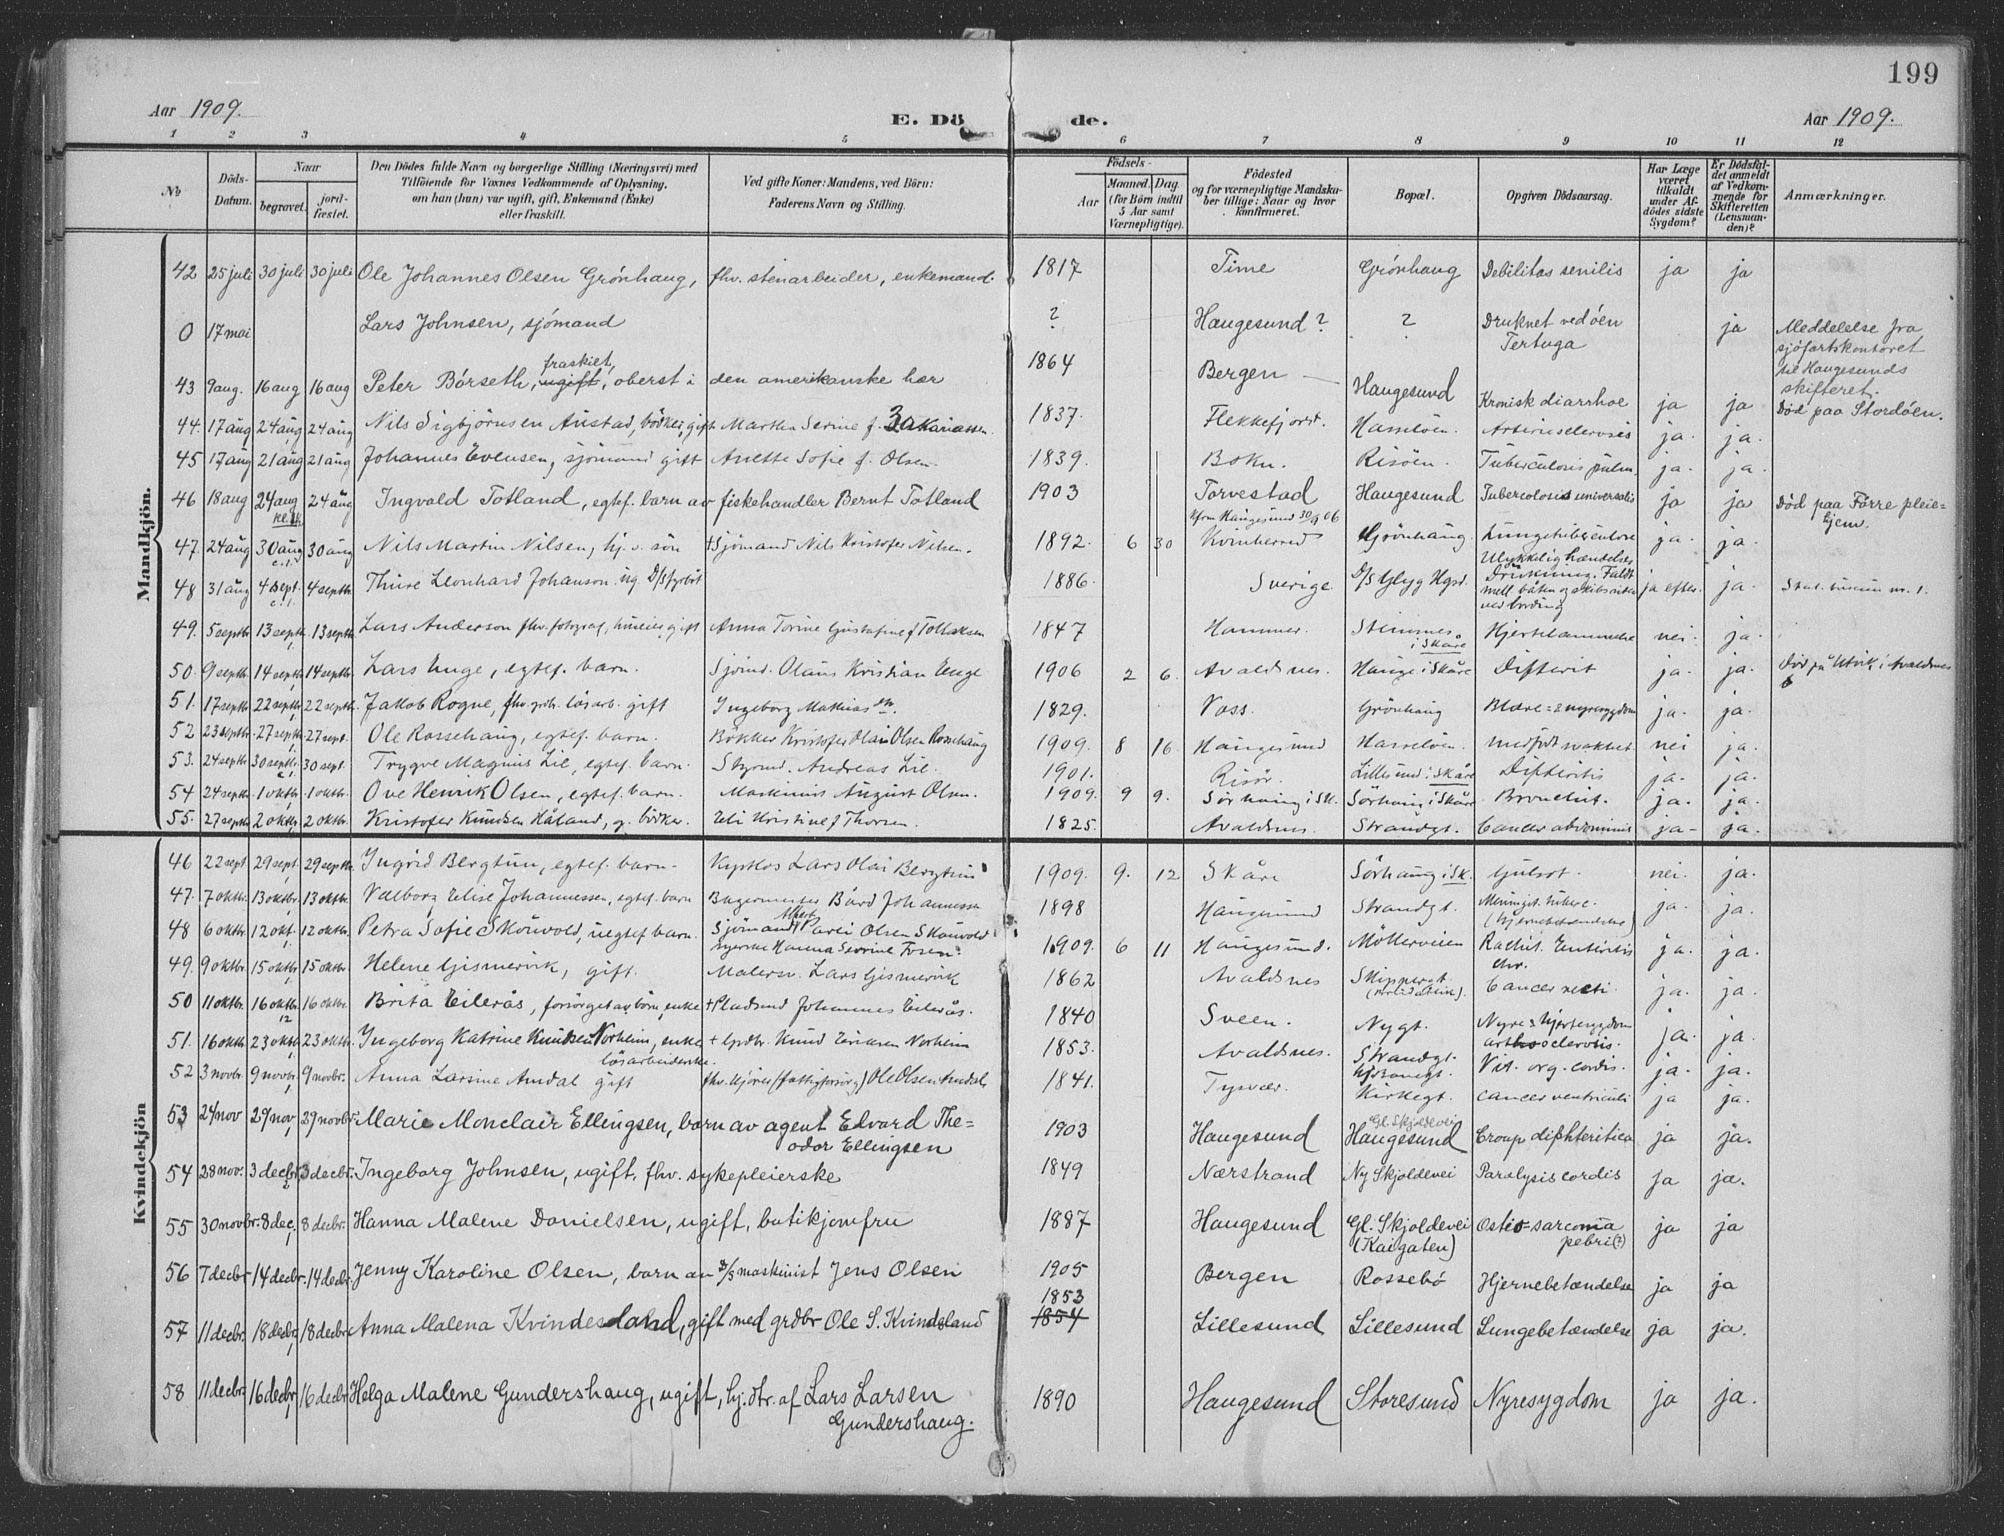 199
Aar 1909. E. Dö de. Aar 1909.
1 2 3 4 5 6 7 8 9 10 11 12
No Döds-Datum. Naar begravet. jordfæstet. Den Dödes fulde Navn og borgerlige Stilling (Næringsvei) med Tilföiende for Voxnes Vedkommende af Oplysning, om han (hun) var ugift, gift, Enkemand (Enke) eller fraskilt. Ved gifte Koner: Mandens, ved Börn: Faderens Navn og Stilling. Födsels- Aar Maaned. Dag. (for Börn indtil 5 Aar samt Værnepligtige). Födested og for værnepligtige Mandskaber tillige: Naar og hvor konfirmeret. Bopæl. Opgiven Dödsaarsag. Har Læge været tilkaldt under Afdödes sidste Sygdom? Er Dödsfaldet anmeldt af Vedkommende for Skifteretten (Lensmanden)? Anmærkninger.
Mandkjön.
42 25 juli 30 juli 30 juli Ole Johannes Olsen Grónhaug, fhv. stenarbeider, enkemand. 1817 Time Grónhaug Debilitas senilis ja ja
0 17 mai Lars Johnsen, sjómand ? Haugesund? ? Druknet ved óen Tertuga ja Meddelelse fra sjófartskontoret til Haugesunds skifteret.
43 9 aug. 16 aug 16 aug Peter Bórseth, ugift, fraskilt, oberst i den amerikanske hær 1864 Bergen Haugesund Kronisk diarrhoe ja ja Död paa Stordóen.
44. 17 aug 24 aug 24 aug Nils Sigbjörnsen Anstad, bökker, gift Martha Serine f. Zakariassen. 1837. Flekkefjord. Hasselöen. Arteriesclerosis ja. ja.
45 17 aug 21 aug 21 aug Johannes Evensen, sjömand gift Anette Sofie f. Olsen. 1839. Bokn. Risöen. Tuberculosis pulm. ja. ja.
46 18 aug 24 aug 24 aug Ingvald Totland, egtef. barn av fiskehandler Bernt Totland 1903 Torvestad Haugesund Tuberculosis universalis ja ja Död paa Fórre pleiehjem.
47. 24 aug 30 aug 30 aug Nils Martin Nilsen, hj. v. sön +Sjömand Nils Kristofer Nilsen. 1892. 6 30 Kfrm Haugesund 30/9 06 Kvinherred Grönhaug. Lungetuberculose ja. ja.
48 31 aug 4 sept. 4 septbr. Thure Leonhard Johanson. ug. D/S fyrböt 1886. Sverige. D/S Glyg Hgsd. Ulykkelig Hændelse Drukning. Faldt mell båten og skibssiden ved bording ja efter. ja.
49. 5 septbr. 13 septbr. 13 septbr. Lars Anderson fhv. fotograf, huseier, gift Anna Torine Gustafine f Tollaksen 1847 Hammer. Stemmes i Skåre Hjertelammelse nei. ja.
50. 9 septbr. 14 septbr. 14 septbr. Lars Enge, egtef. barn. Sjömd. Olaus Kristian Enge 1906 2 6. Avaldsnes. Hauge i Skåre Difterit ja. ja. Död på Utvik i Avaldsnes
51. 17 septbr. 22 septbr. 22 septbr. Jakob Rogne, fhv. lösarb. gift Ingeborg Mathiasdtr. 1829. Voss. Grönhaug Blære- & nyresygdom ja. ja.
52 23 septbr. 27 septbr. 27 sept. Ole Rossehaug, egtef. barn. Bökker Kristofer Olai Olsen Rossehaug 1909. 8 16. Haugesund Hasselöen. medfödt svakhet nei ja.
53. 24 septbr. 30 septbr. 30 sept. Trygve Magnus Lie, egtef. barn. Styrmd. Andreas Lie. 1901. Risör. Lillesund i Skåre Difteritis ja. ja.
54 24 septbr. 1 oktbr. 1 oktbr. Ove Henrik Olsen, egtef. barn. Maskinist August Olsen. 1909. 9 9. Sörhaug i Sk. Sörhaug i Skåre Bronchit. ja. ja.
55. 27 septbr. 2 oktbr. 2 oktbr. Kristofer Knudsen Håland, g. bödker. Eli Kristine f Thorsen. 1825. Avaldsnes. Strandgt. Cancer abdominis ja. ja.
Kvindekjön
46 22 sept 29 sept. 29 septbr. Ingrid Bergtun, egtef. barn. Lars Olai Bergtun 1909. 9. 12 Skåre Sörhaug i Sk. Gulsot. nei. ja.
47. 7 oktbr. 13 oktbr. 13 oktbr. Valborg Elise Johannessen, egtef. barn Bagermester Bård Johannessen 1898 Haugesund Strandgt. Meningit. tuberc. (Hjernebetændelse) ja. ja.
48 6 oktbr. 12 okt. 12 oktbr. Petra Sofie Skonvold, uegtef barn. Sjömand Albert Parli Olsen Skonvold 1909. 6 11 Haugesund. Möllerveien Rachit. Enteritis chr. ja. ja.
49. 9 oktbr. 15 oktbr. 15 oktbr. Helene Gismervik, gift. Malersv. Lars Gismervik 1862 Avaldsnes Skippergt. Cancer recti ja. ja.
50 11 oktbr. 16 oktbr. 16 oktbr. Brita Eilerås, forsörget av börn, enke +Pladsmd Johannes Eilerås. 1840 Sveen. Nygt. Nyre & hjertesygdom ja. ja.
51. 16 oktbr. 23 oktbr. 23 oktbr. Ingeborg Katrine Knutsen Norheim, enke lösarbeiderske. + Grdbr. Knud Eriksen Norheim 1853. Avaldsnes. Strandgt. arteriosclerosis. ja. ja.
52 3 novbr. 9 novbr. 9 novbr. Anna Larsine Amdal gift fhv. kjörer (fattigforsörg) Ole Olsen Amdal 1841. Tysvær. Kirkegt. Vit. org. cordis. cancer ventriculi ja. ja.
53 24/nov 29/nov, 29 novbr. Marie Monclair Ellingsen, barn av agent Edvard Theodor Ellingsen 1903 Haugesund Gl. Skjoldevei Haugesund Croup diphteritica ja ja.
54 28 nov. 3 decbr. 3 decbr. Ingeborg Johnsen, ugift, fhv. sykepleierske 1849 Nærstrand Ny Skjoldevei Paralysis cordis ja ja.
55 30 novbr. 8 dec. 8 decbr. Hanna Malene Danielsen, ugift, butikjomfru 1887 Haugesund Gl. Skjoldevei (Kaigaten) Osteo-sarcoma pebri(?) ja ja
56 7 decbr 14 decbr. 14 decbr. Jenny Karoline Olsen, barn av D/S maskinist Jens Olsen 1905 Bergen Rossebö Hjernebetændelse ja ja
57 11 decbr. 18 decbr. 18 decbr. Anna Malena Kvindesland, gift med grdbr Ole S. Kvindesland 1853 1854 Lillesund Lillesund Lungebetændelse ja ja.
58 11 decbr. 16 decbr. 16 decbr. Helga Malene Gundershaug, ugift, hj. dtr. af Lars Larsen Gundershaug. 1890 Haugesund Storesund Nyresygdom ja ja.